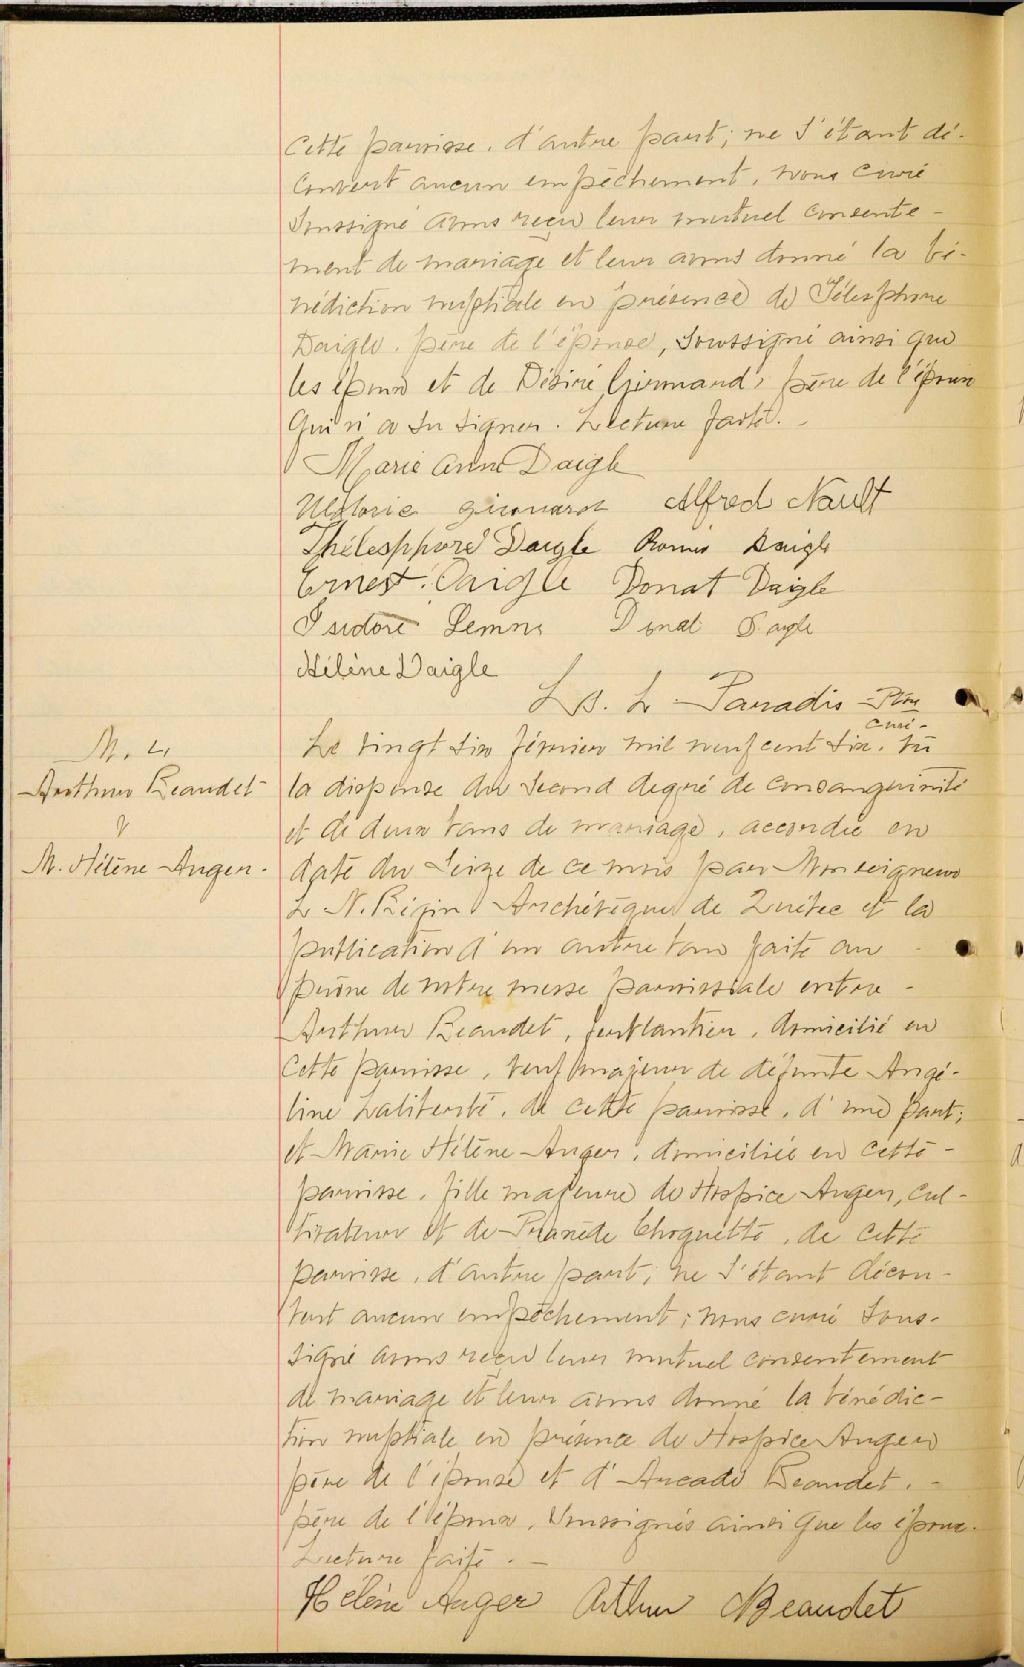 cette paroisse, d'autre part; ne s'étant dé-
couvert aucun empêchement, nous curé
soussigné avons reçu leur mutuel consente-
ment de mariage et leur avons donné la bé-
nédiction nuptiale en présence de Télesphore
Daigle, père de l'épouse, soussigné ainsi que
les époux et de Désiré Girouard, père de l'époux
qui n'a su signer. Lecture faite.
Marie Anne Daigle
girouard Alfred Nault
Thélesphore Daigle Daigle
Ernest Daigle Donat Daigle
Isidore Donat Daigle
Hélène Daigle
Ls. L. Paradis Ptre
curé.
M. 4
Arthur Beaudet
&
M. Hélène Auger.
Le vingt six février mil neuf cent six, vu
la dispense du second degré de consanguinité
et de deux bans de mariage, accordée en
date du seize de ce mois par Monseigneur
L. N. Bégin Archévêque de Québec et la
publication d'un autre ban faite au
prône de notre messe paroissiale entre
Arthur Beaudet, ferblantier, domicilié en
cette paroisse, veuf majeur de défunte Angé-
line Laliberté, de cette paroisse, d'une part;
et Marie Hélène Auger, domiciliée en cette
paroisse, fille majeure de Hospice Auger, cul-
tivateur et de Praxède Choquette, de cette
paroisse, d'autre part; ne s'étant décou-
vert aucun empêchement; nous curé sous-
signé avons reçu leur mutuel consentement
de mariage et leur avons donné la bénédic-
tion nuptiale en présence de Hospice Auger
père de l'épouse et d'Arcade Beaudet,
père de l'époux, soussignés ainsi que les époux.
Lecture faite.
Hélène Auger Arthur Beaudet